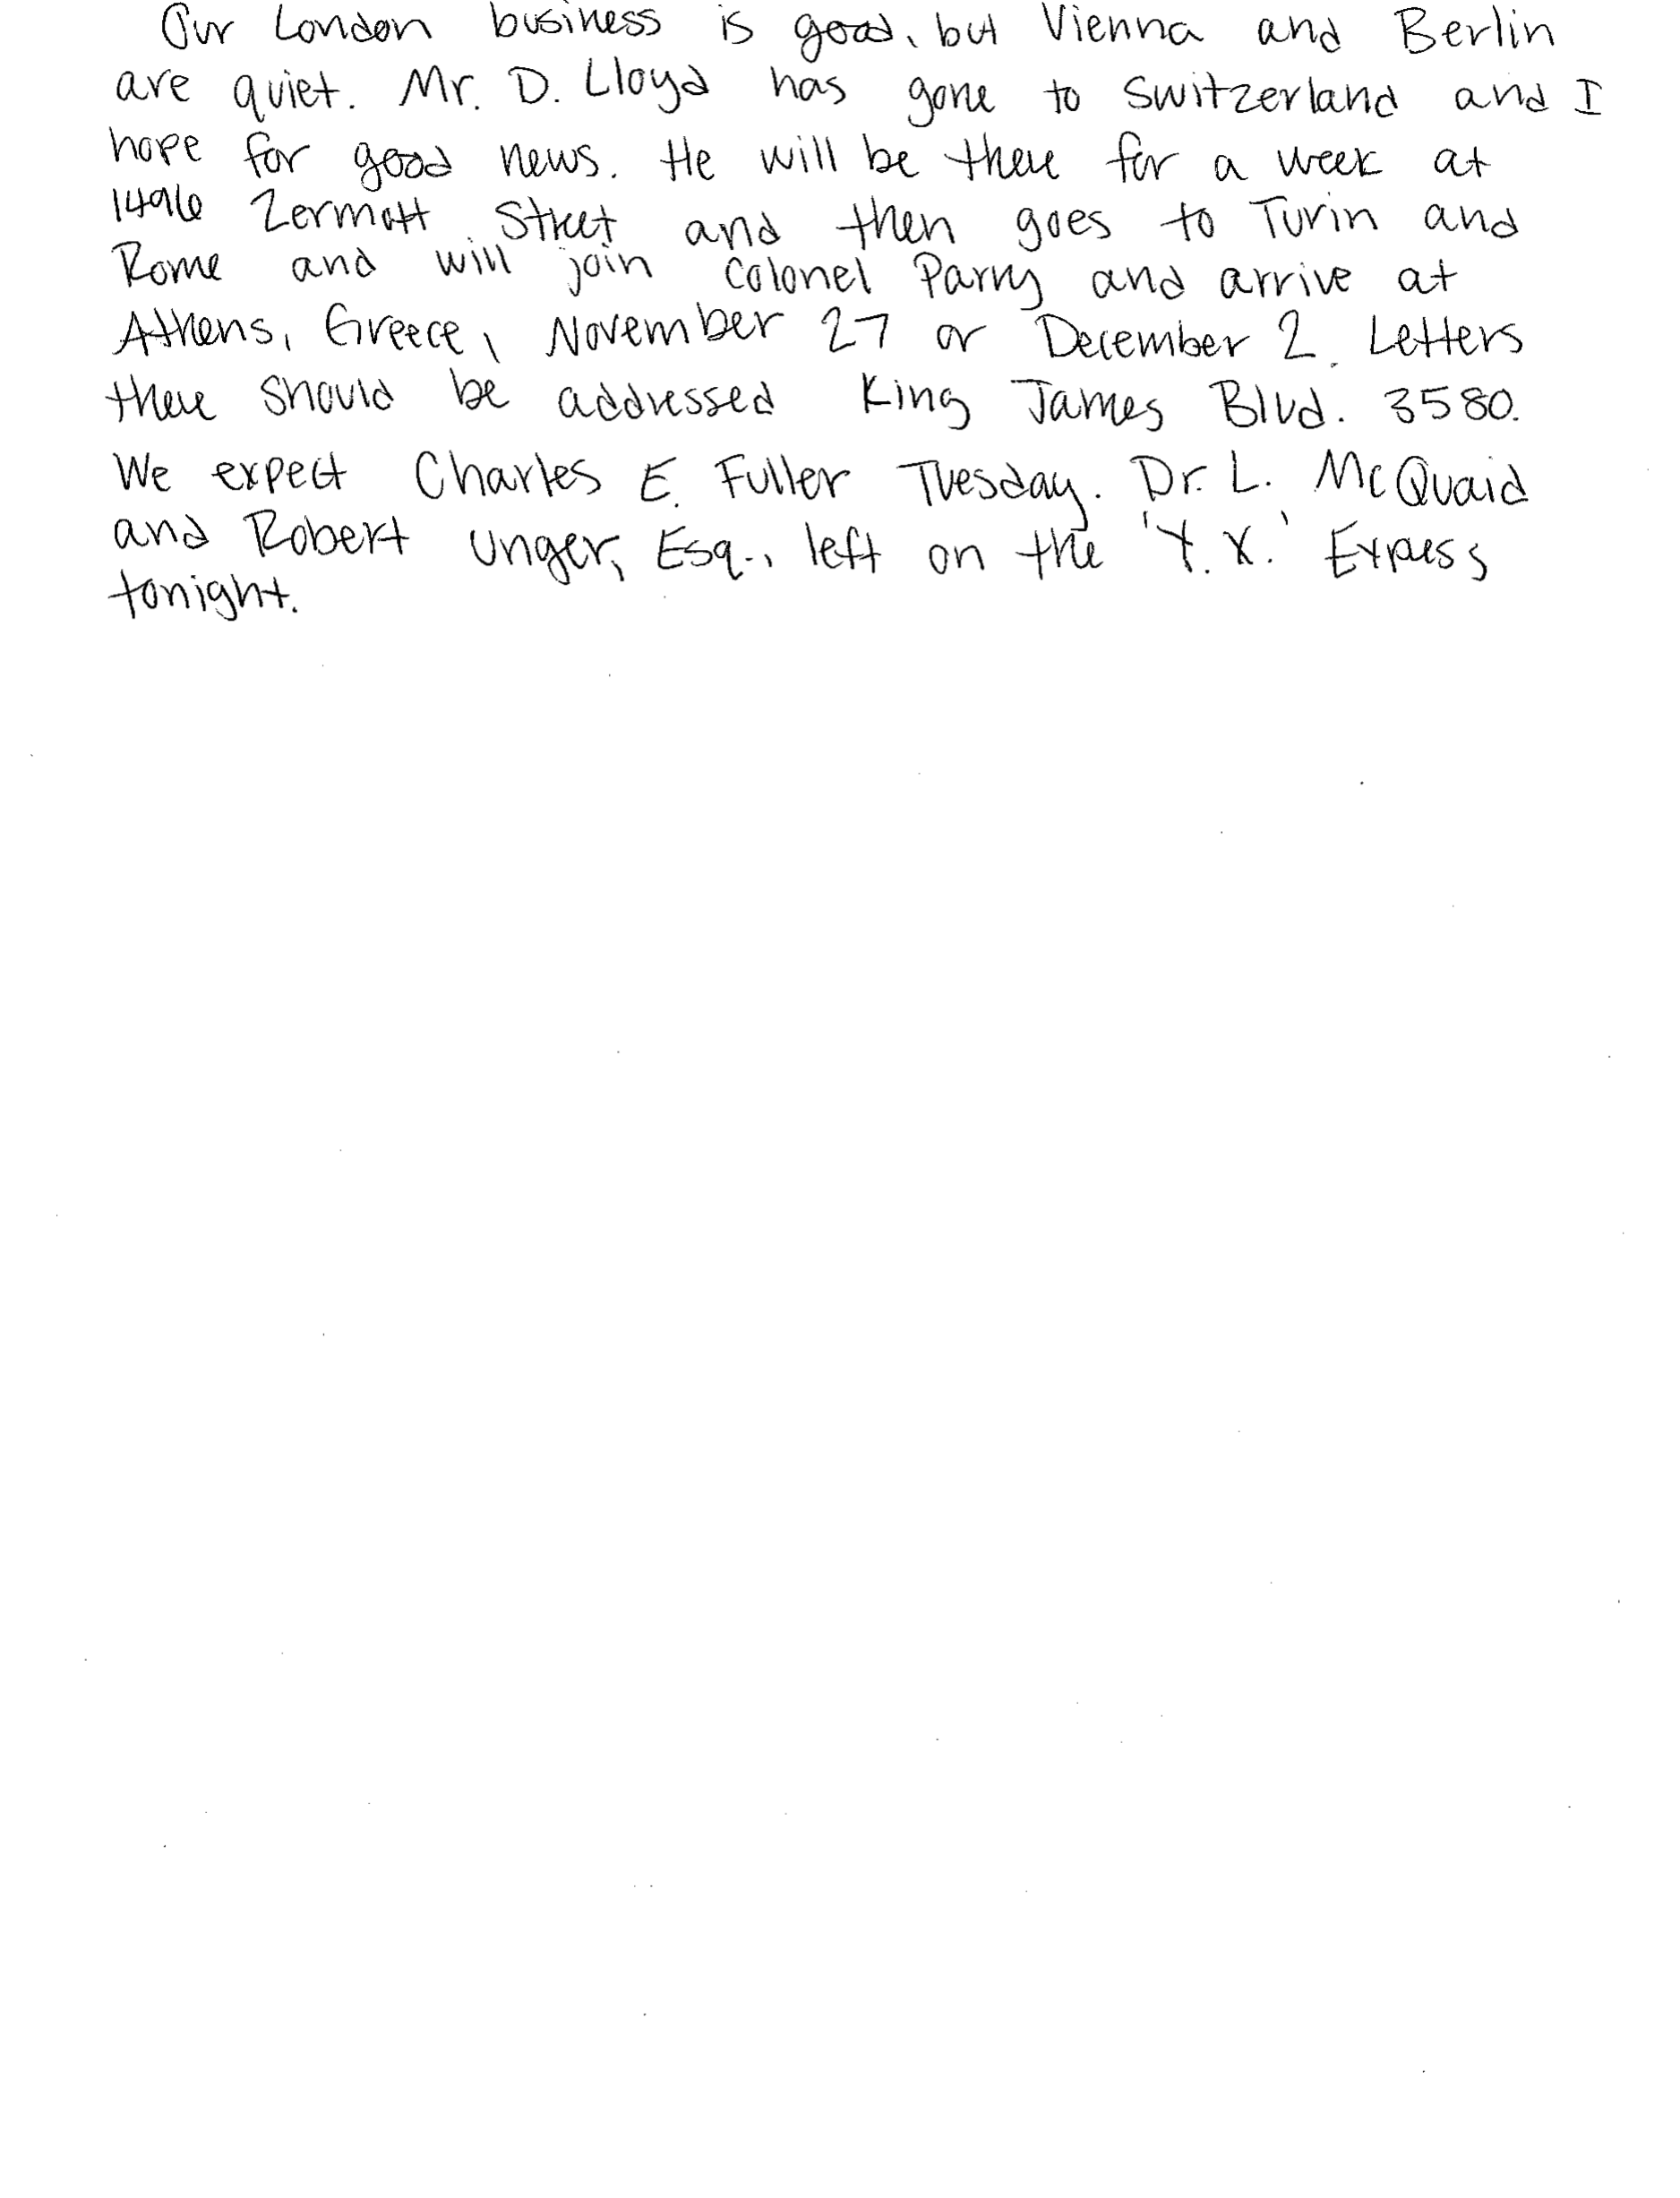 Our London business is good, but Vienna and Berlin
are quiet. Mr. D. Lloyd has gone to Switzerland and I
hope for good news. He will be there for a week at
1496 Zermatt Street and then goes to Turin and
Rome and will join Colonel Parry and arrive at
Athens, Greece, November 27 or December 2. Letters
there should be addressed King James Blvd. 3580.
We expect Charles E. Fuller Tuesday. Dr. L. McQuaid
and Robert Unger, Esq., left on the 'Y.X.' Express
tonight.